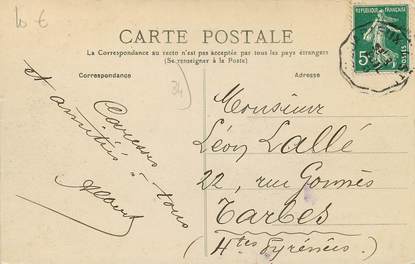 10 €
CARTE POSTALE
La Correspondance au recto n'est pas acceptée par tous les pays étrangers
(Se renseigner à la Poste)
Correspondance
Adresse
34
RÉPUBLIQUE FRANÇAISE
5
Caresses à tous
et amitiés
Monsieur
Léon Lallé
22, rue
Tarbes
(Htes Pyrénées)